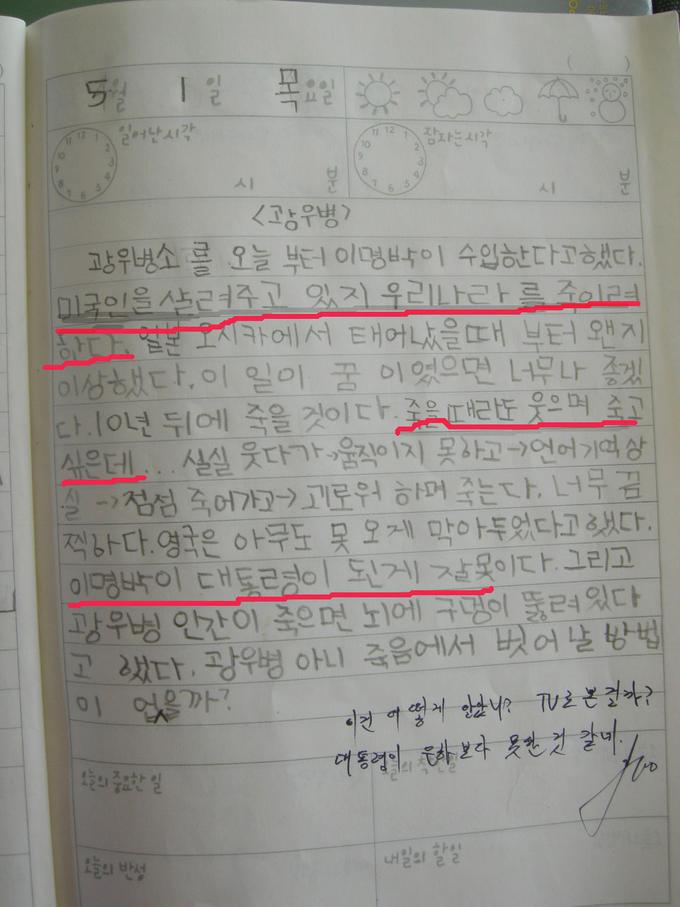 ( )
5월 1일 목요일
일어난시각 잠자는시각
시 분 시 분
<광우병>
광우병소 를 오늘 부터 이명박이 수입한다고했다.
미국인을 살려주고 있지 우리나라 를 죽이려
한다. 일본 오시카에서 태어났을때 부터 왠지
이상했다. 이 일이 꿈 이였으면 너무나 좋겠
다. 10년 뒤에 죽을 것이다. 죽을 때라도 웃으며 죽고
싶은데... 실실 웃다가→움직이지 못하고→언어기억상
실→점점 죽어가고→괴로워 하며 죽는다. 너무 끔
찍하다. 영국은 아무도 못 오게 막아두었다고했다.
이명박이 대통령이 된게 잘못이다. 그리고
광우병 인간이 죽으면 뇌에 구멍이 뚫려있다
고 했다. 광우병 아니 죽음에서 벗어날 방법
이 없을까?
이건 어떻게 알았니? TV로 본걸까?
대통령이 보다 못한 것 같네.
오늘의 중요한 일 오늘의 착한 일
오늘의 반성 내일의 할일